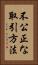 不公正な
取引方法